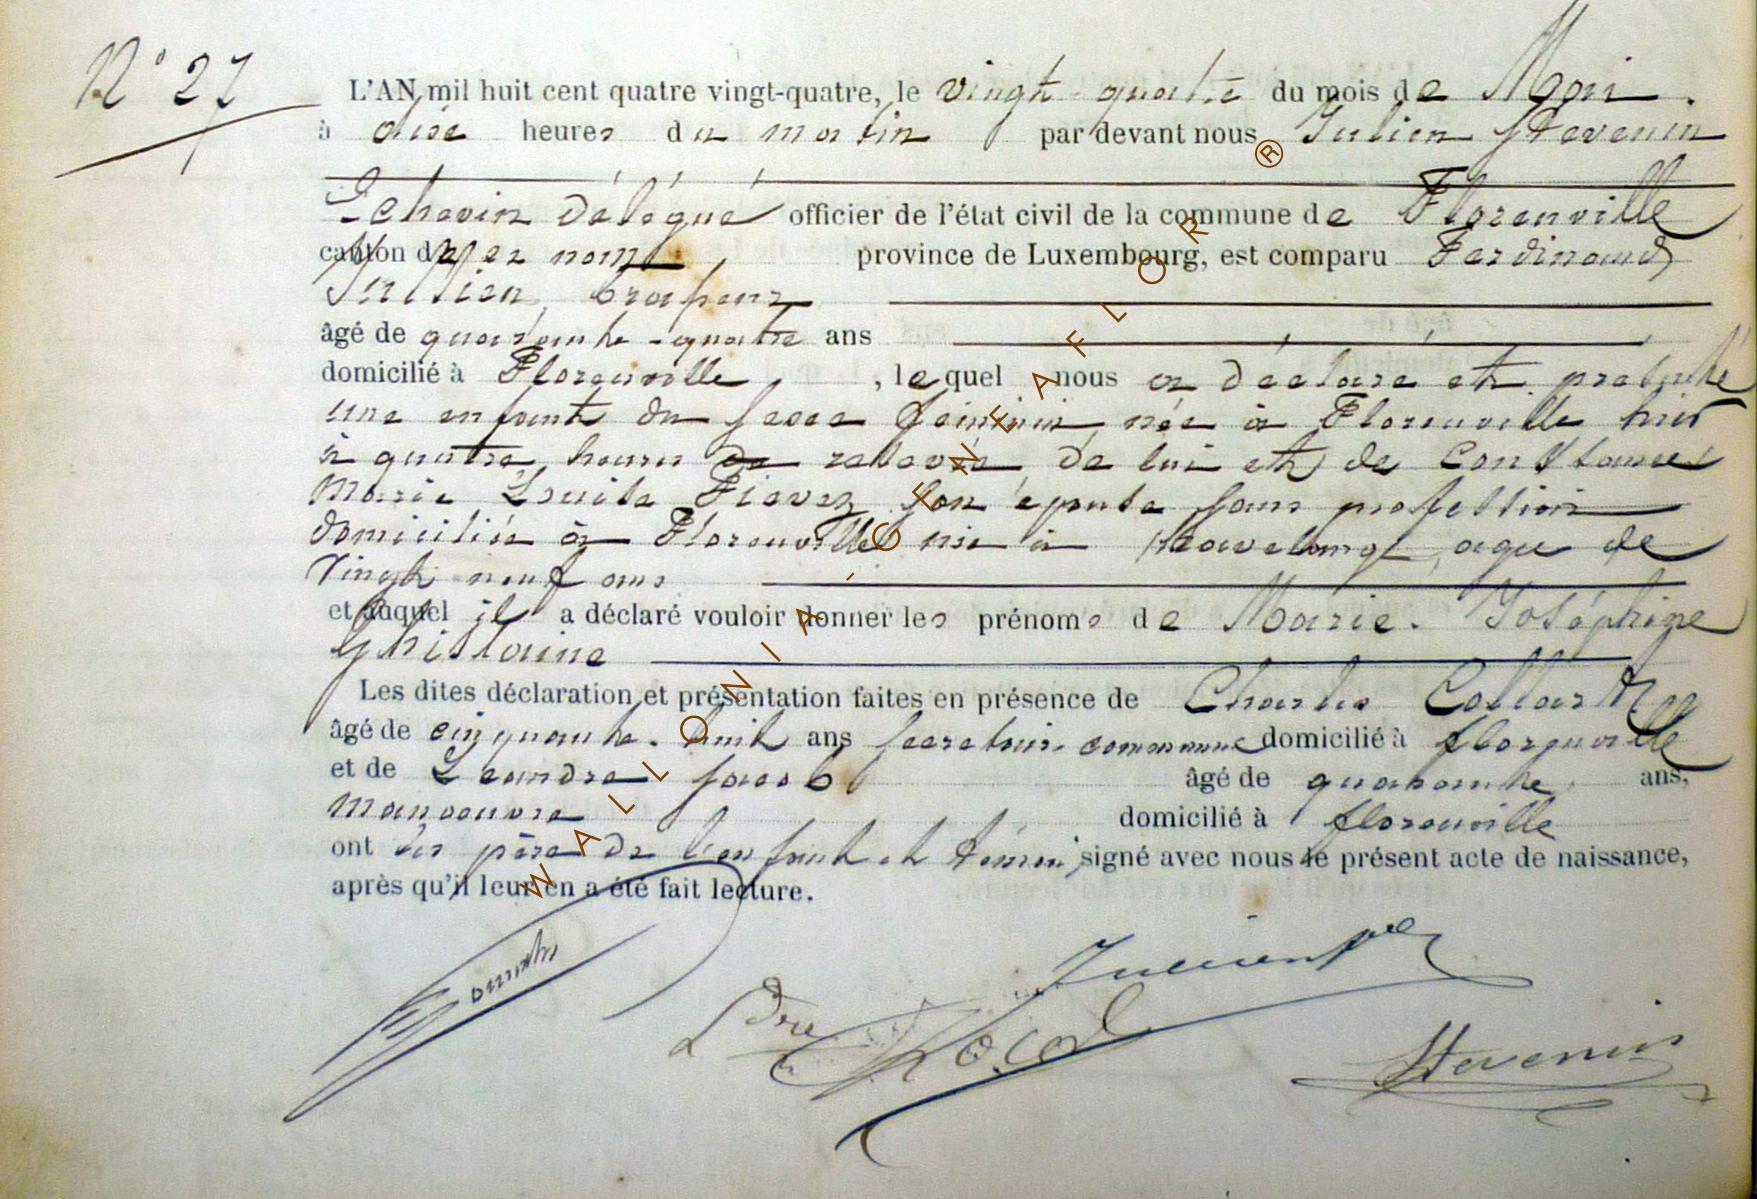 N° 27
L'AN mil huit cent quatre vingt-quatre, le vingt-quatre du mois de Mai.
à onze heures du matin par devant nous Julien Stevenin
Echevin délégué officier de l'état civil de la commune de Florenville
canton de ce nom province de Luxembourg, est comparu Ferdinand
Jullien,
âgé de quarante-quatre ans
domicilié à Florenville, lequel nous a déclaré et présenté
une enfant du sexe féminin née à Florenville hier
à quatre heures de relevée de lui et de Constance
Marie Louise Fievez son épouse sans profession
domiciliée à Florenville née à agée de
vingt neuf ans
et auquel il a déclaré vouloir donner les prénoms de Marie. Joséphine
Ghislaine
Les dites déclaration et présentation faites en présence de Charles Collart
âgé de cinquante-huit ans secretaire communal domicilié à florenville
et de Leandre Jacob âgé de quarante ans,
manoeuvre domicilié à florenville
ont les père de l'enfant et témoins signé avec nous le présent acte de naissance,
après qu'il leur en a été fait lecture.
Ldre Jacob
Stevenin
WALLONIA - GENEAFLOR ®